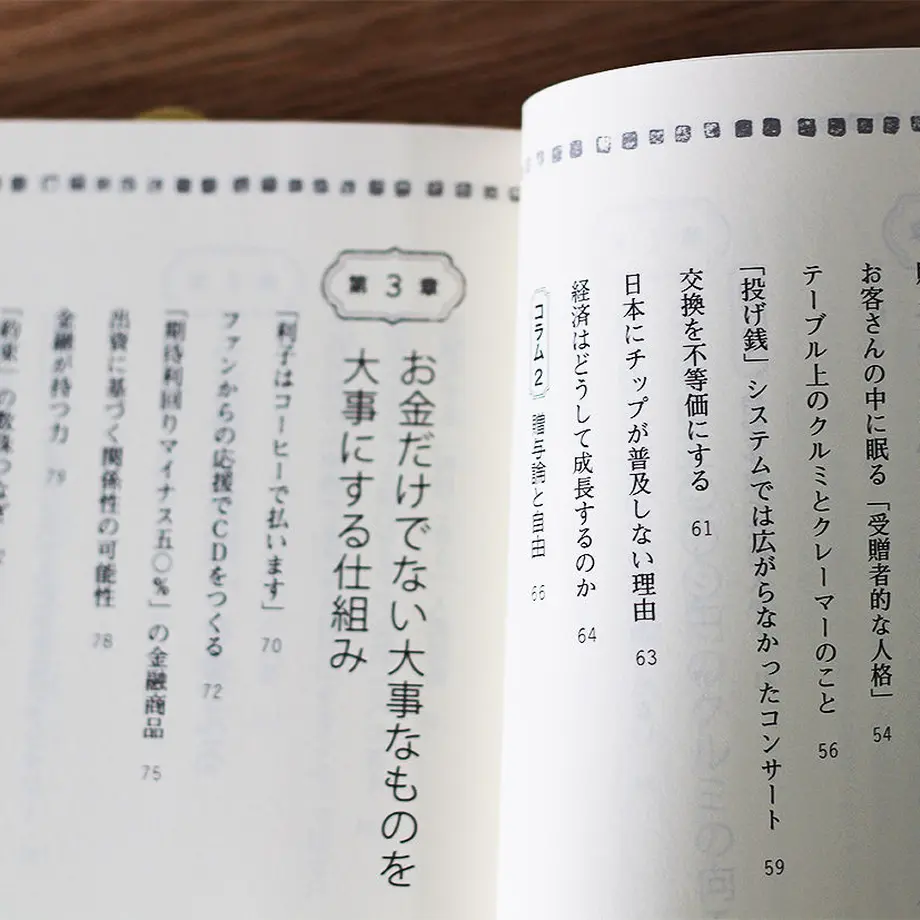 お客さんの中に眠る「受贈者的な人格」 54
テーブル上のクルミとクレーマーのこと 56
「投げ銭」システムでは広がらなかったコンサート 59
交換を不等価にする 61
日本にチップが普及しない理由 63
経済はどうして成長するのか 64
コラム2 贈与論と自由 66
第3章
お金だけでない大事なものを
大事にする仕組み
「利子はコーヒーで払います」 70
ファンからの応援でCDをつくる 72
「期待利回りマイナス五〇%」の金融商品 75
出資に基づく関係性の可能性 78
金融が持つ力 79